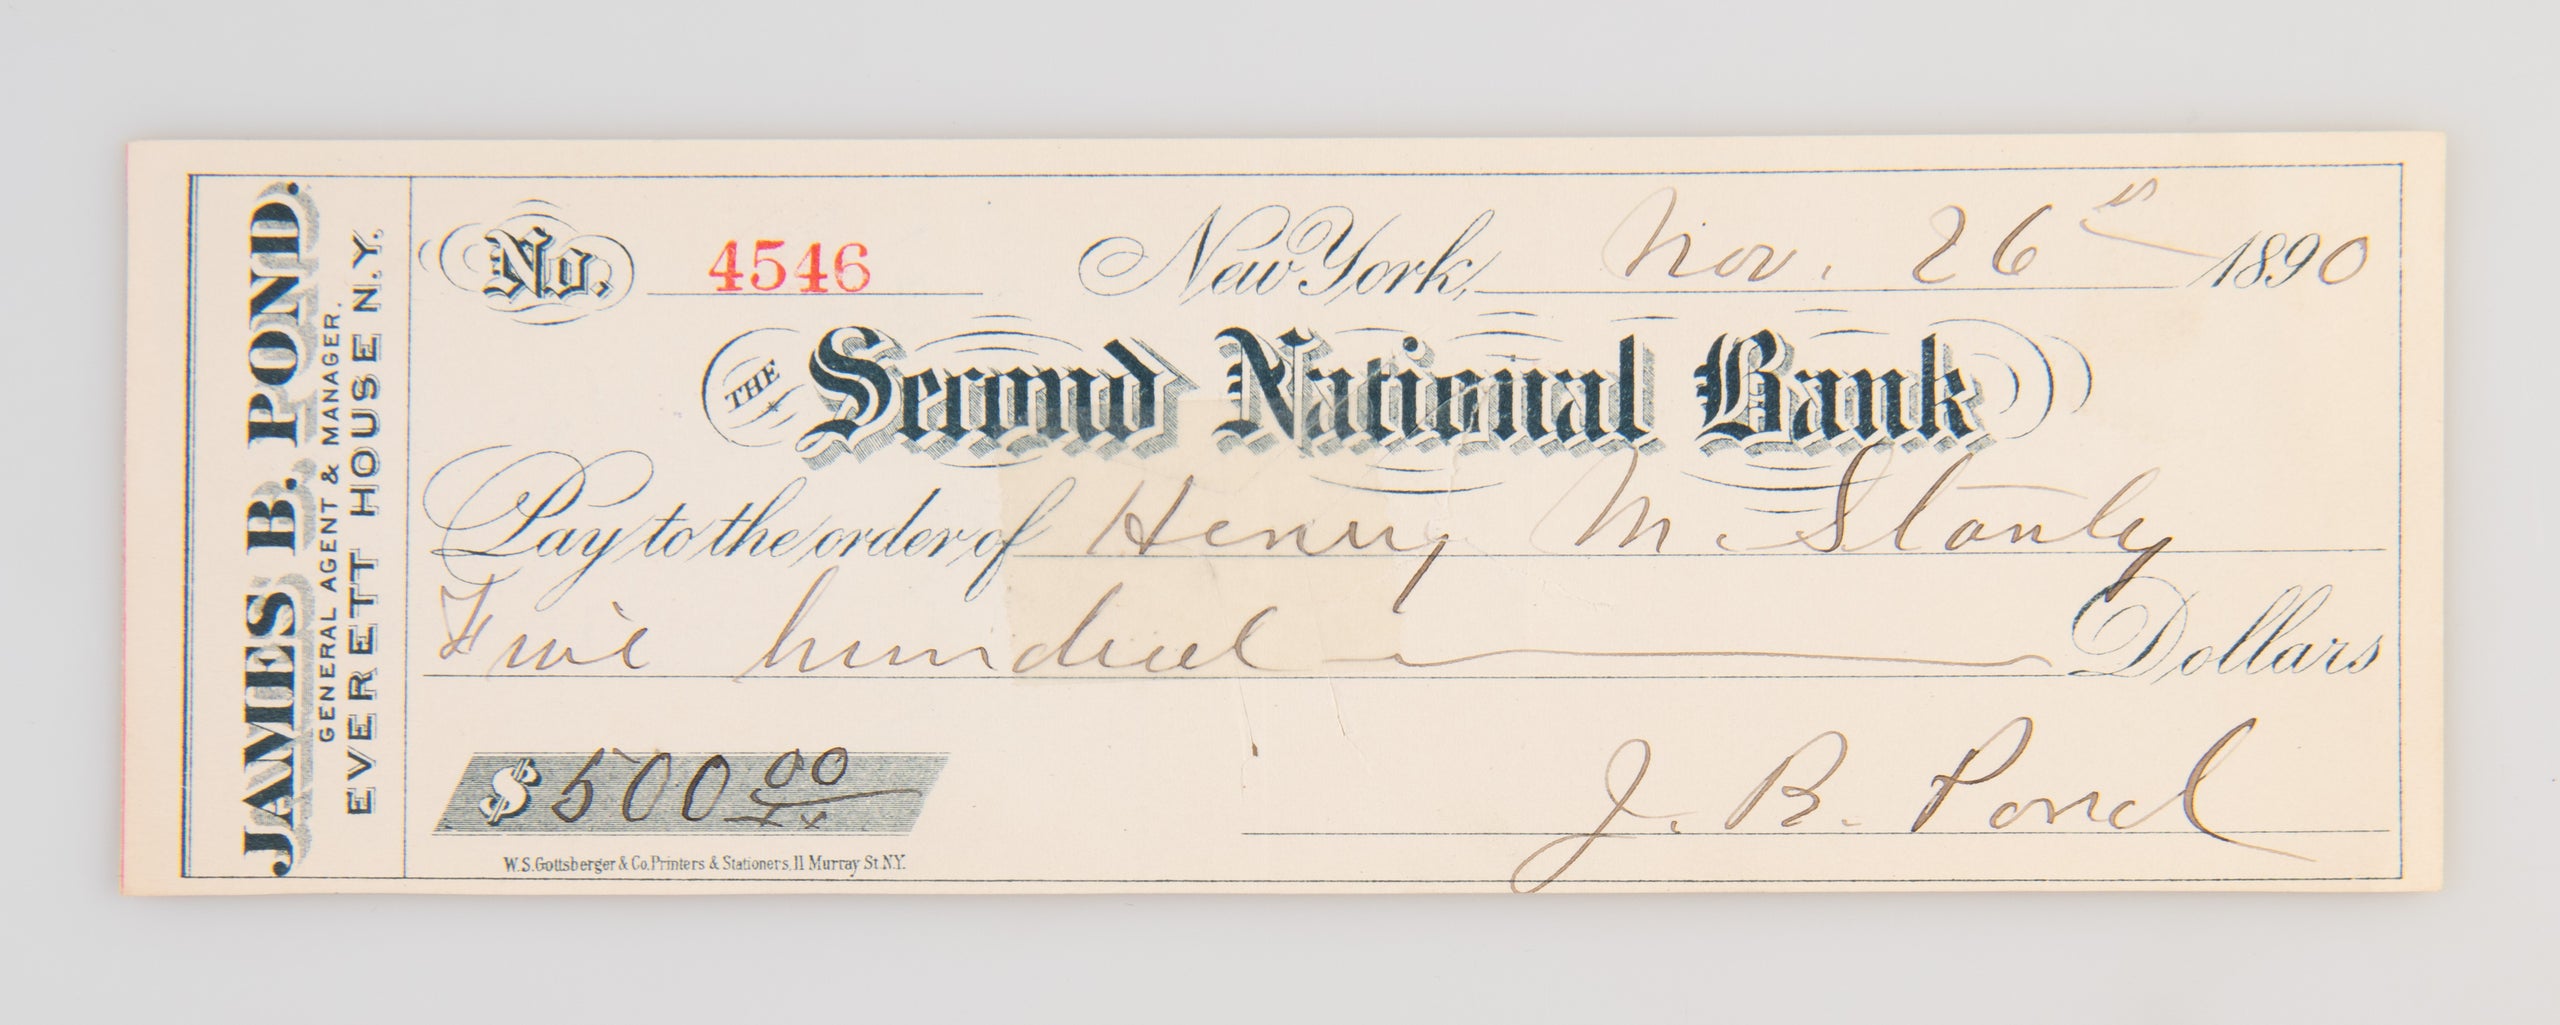 JAMES B. POND.
GENERAL AGENT & MANAGER.
EVERETT HOUSE N.Y.
No. 4546 New York, Nov. 26th 1890
THE Second National Bank
Pay to the order of Henry M. Stanly
Five hundred Dollars
$500 00/xx
J. B. Pond
W.S. Gottsberger & Co. Printers & Stationers, 11 Murray St. N.Y.